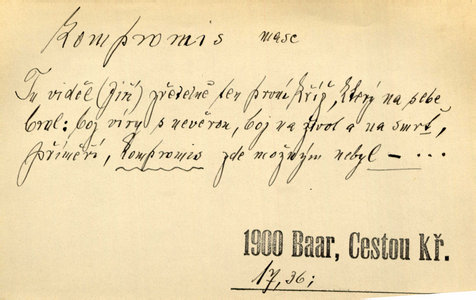 Kompromis masc
Tu viděl (Jiří) zřetelně ten první kříž, který na sebe
bral: boj víry s nevěrou, boj na život a na smrt,
příměří, kompromis zde možným nebyl — ...
1900 Baar, Cestou Kř.
17, 36;